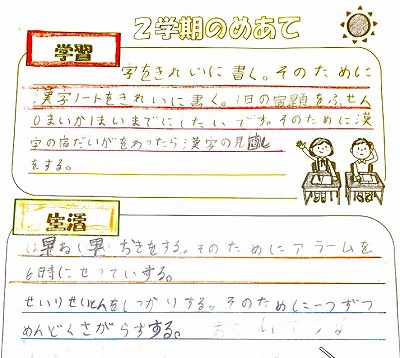 2学期のめあて
学習
字をきれいに書く。そのために
漢字ノートをきれいに書く。1日の宿題をふせん
0まいか1まいまでにしたいです。そのために漢
字の宿だいがをわったら漢字の見直し
をする。
生活
は早ねし早おきをする。そのためにアラームを
6時にせっていする。
せいりせいとんをしっかりする。そのために一つずつ
めんどくさがらずする。